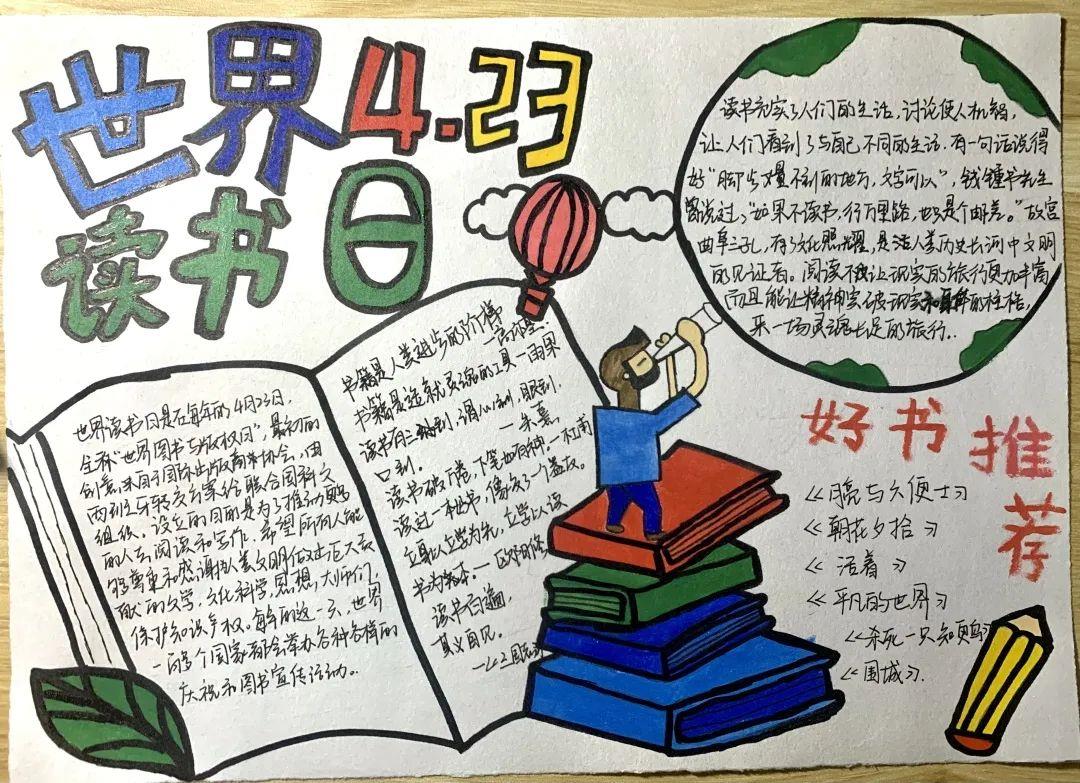 世界4.23
读书日
世界读书日是在每年的4月23日,
全称"世界图书与版权日",最初的
创意来自于国际出版商协会。由
西班牙转交方案给联合国科文
组织。设立的目的是为了推动更多
的人去阅读和写作,希望所有人能
够尊重和感谢为人类文明做过巨大贡
献的文学,文化,科学,思想,大师们,
保护知识产权。每年的这一天,世界
一百多个国家都会举办各种各样的
庆祝和图书宣传活动。
书籍是人类进步的阶梯
—高尔基
书籍是造就灵魂的工具—雨果
读书有三到,谓心到,眼到,
口到。 —朱熹
读书破万卷,下笔如有神。—杜甫
读过一本好书,像交了一个益友。
立身以立学为先,立学以读
书为本。—欧阳修
读书百遍,
其义自见。
读书充实了人们的生活,讨论使人机智,
让人们看到了与自己不同的生活.有一句话说得
好"脚步丈量不到的地方,文字可以",钱锺书先生
曾说过:"如果不读书,行万里路,也只是个邮差。"故宫
曲阜三孔,有了文化照耀,是活人类历史长河中文明
的见证者。阅读不仅让玩家的旅行更加丰富
而且能让精神突破现实的桎梏,
来一场灵魂长足的旅行..
好书推荐
《月亮与六便士》
《朝花夕拾》
《活着》
《平凡的世界》
《杀死一只知更鸟》
《围城》.